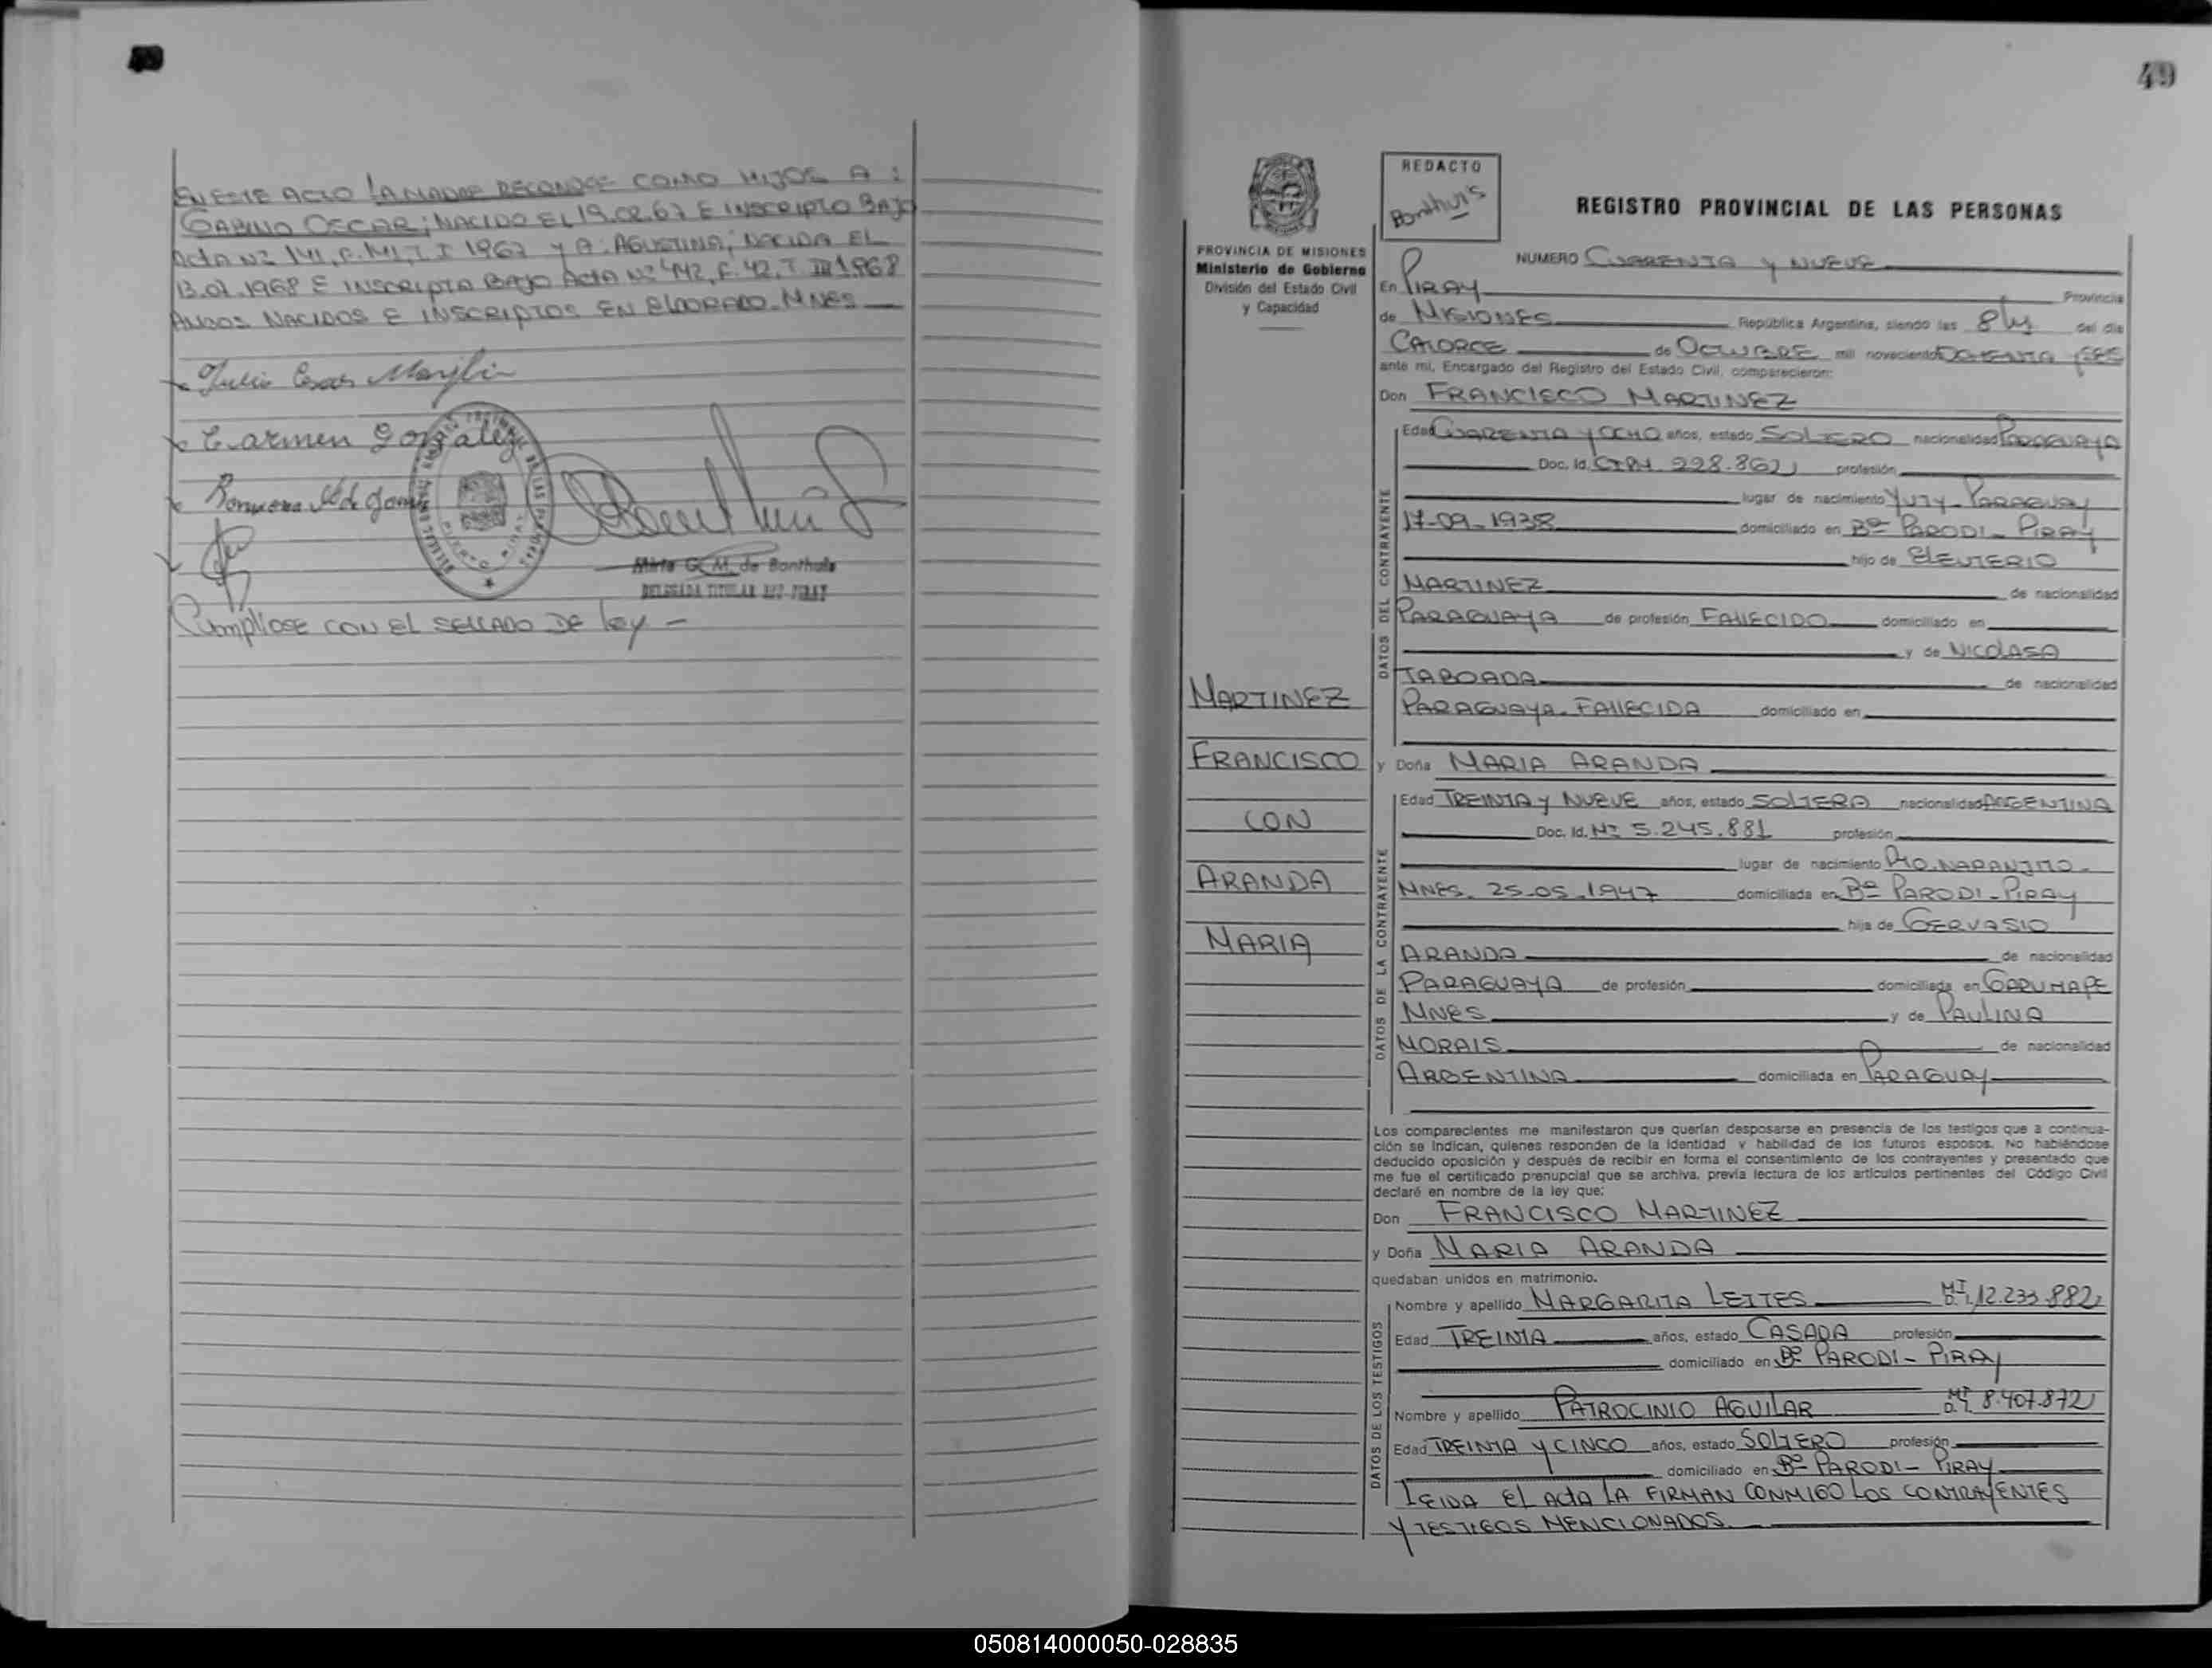 EN ESTE ACTO LA MADRE RECONOCE COMO HIJOS A :
GABINO OSCAR; NACIDO EL 19.02.67 E INSCRIPTO BAJO
ACTA Nº 141, F. 141, T. I 1967 Y A: AGUSTINA; NACIDA EL
13.01.1968 E INSCRIPTA BAJO ACTA Nº 442, F. 42, T III 1968
AMBOS NACIDOS E INSCRIPTOS EN ELDORADO-MNES
Julio Cesar
Carmen Gonzalez
Ramona de
Mirta G. M. de Bonthuis
DELEGADA TITULAR
Cumpliose CON EL SELLADO DE ley -
49
PROVINCIA DE MISIONES
Ministerio de Gobierno
División del Estado Civil
y Capacidad
REDACTO
Bonthuis
REGISTRO PROVINCIAL DE LAS PERSONAS
NUMERO CUARENTA Y NUEVE
En PIRAY Provincia
de MISIONES República Argentina, siendo las 8 hs del día
CATORCE de OCTUBRE mil novecientos OCHENTA Y SEIS
ante mi, Encargado del Registro del Estado Civil, comparecieron:
Don FRANCISCO MARTINEZ
Edad CUARENTA Y OCHO años, estado SOLTERO nacionalidad PARAGUAYA
Doc. Id. 228.862 profesión
lugar de nacimiento YUTY-PARAGUAY
17-09-1938 domiciliado en Bº PARODI-PIRAY
hijo de ELEUTERIO
MARTINEZ de nacionalidad
PARAGUAYA de profesión FALLECIDO domiciliado en
y de NICOLASA
TABOADA de nacionalidad
PARAGUAYA-FALLECIDA domiciliado en
DATOS DEL CONTRAYENTE
MARTINEZ
FRANCISCO
CON
ARANDA
MARIA
y Doña MARIA ARANDA
Edad TREINTA Y NUEVE años, estado SOLTERA nacionalidad ARGENTINA
Doc. Id. Nº 5.245.881 profesión
lugar de nacimiento PTO. NARANJITO-
MNES. 25-05-1947 domiciliada en Bº PARODI-PIRAY
hija de GERVASIO
ARANDA de nacionalidad
PARAGUAYA de profesión domiciliada en GARUHAPE
MNES y de PAULINA
MORAIS de nacionalidad
ARGENTINA domiciliada en PARAGUAY
DATOS DE LA CONTRAYENTE
Los comparecientes me manifestaron que querían desposarse en presencia de los testigos que a continua-
ción se indican, quienes responden de la identidad y habilidad de los futuros esposos. No habiéndose
deducido oposición y después de recibir en forma el consentimiento de los contrayentes y presentado que
me fue el certificado prenupcial que se archiva, previa lectura de los artículos pertinentes del Código Civil
declaré en nombre de la ley que:
Don FRANCISCO MARTINEZ
y Doña MARIA ARANDA
quedaban unidos en matrimonio.
Nombre y apellido MARGARITA LEITES M.I. D.I. 12.233.882
Edad TREINTA años, estado CASADA profesión
domiciliado en Bº PARODI-PIRAY
Nombre y apellido PATROCINIO AGUILAR M.I. D.I. 8.407.872
Edad TREINTA Y CINCO años, estado SOLTERO profesión
domiciliado en Bº PARODI-PIRAY
DATOS DE LOS TESTIGOS
LEIDA EL ACTA LA FIRMAN CONMIGO LOS CONTRAYENTES
Y TESTIGOS MENCIONADOS.
050814000050-028835